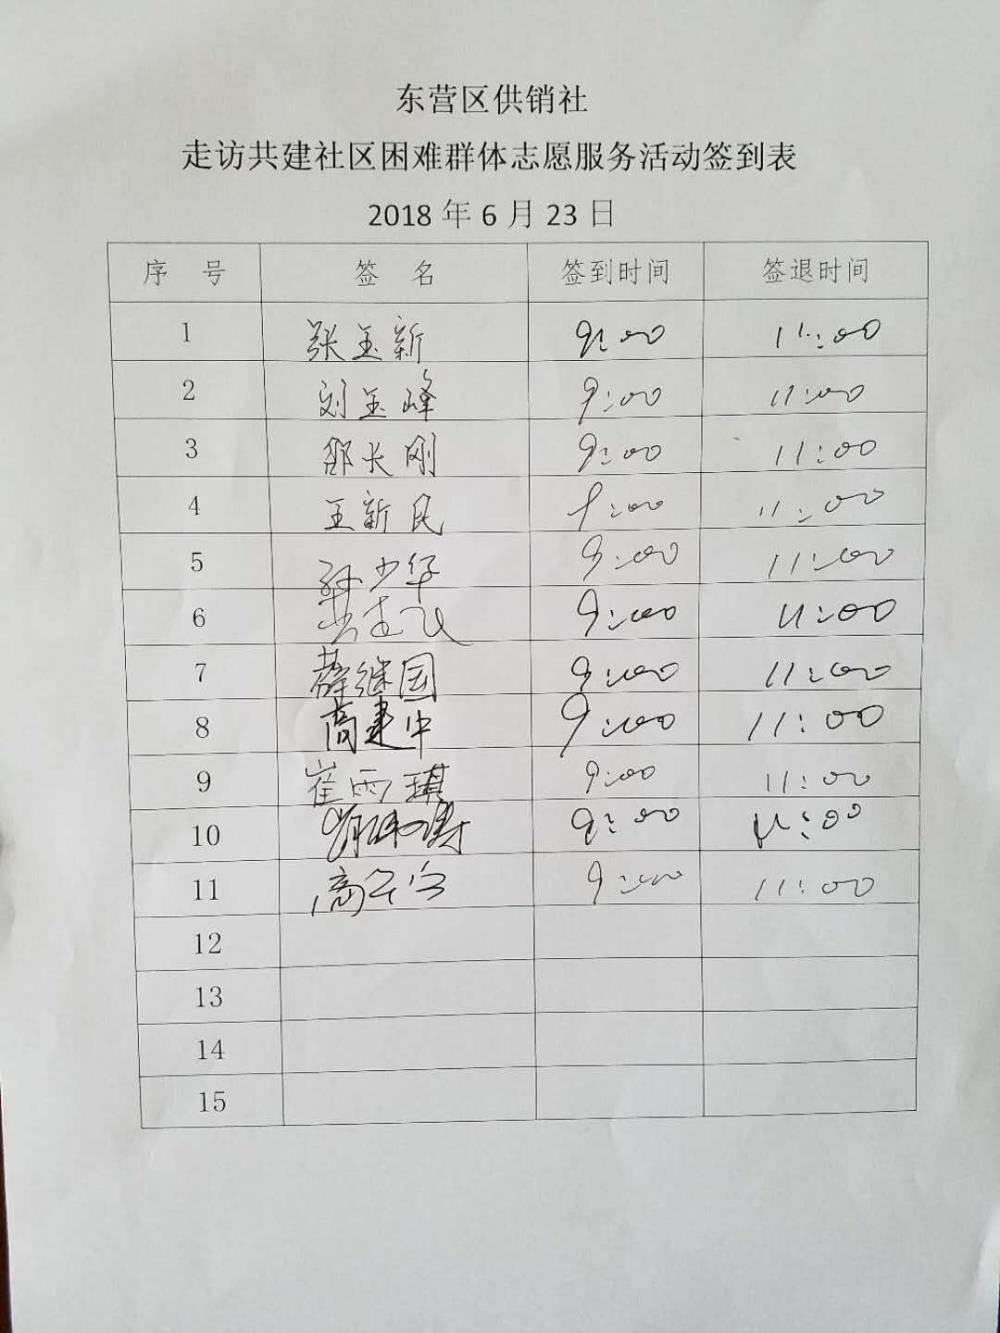 东营区供销社
走访共建社区困难群体志愿服务活动签到表
2018 年 6 月 23 日
序 号 签 名 签到时间 签退时间
1 张玉新 9:00 11:00
2 刘玉峰 9:00 11:00
3 邵长刚 9:00 11:00
4 王新民 9:00 11:00
5 少华 9:00 11:00
6 9:00 11:00
7 薛继国 9:00 11:00
8 高建中 9:00 11:00
9 崔雨琪 9:00 11:00
10 9:00 11:00
11 高 9:00 11:00
12
13
14
15